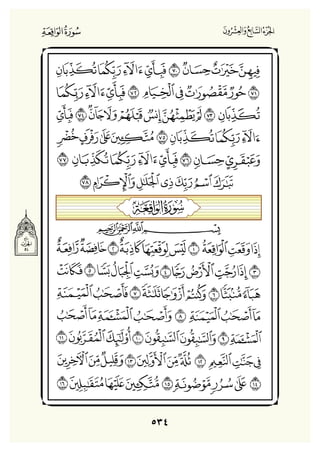 الجُزْءُ السَّابِعُ وَالعِشْرُونَ
سُورَةُ الوَاقِعَةِ
فِيهِنَّ خَيْرَٰتٌ حِسَانٌ ٧٠ فَبِأَيِّ ءَالَآءِ رَبِّكُمَا تُكَذِّبَانِ
٧١ حُورٌ مَّقْصُورَٰتٌ فِي ٱلْخِيَامِ ٧٢ فَبِأَيِّ ءَالَآءِ رَبِّكُمَا
تُكَذِّبَانِ ٧٣ لَمْ يَطْمِثْهُنَّ إِنسٌ قَبْلَهُمْ وَلَا جَآنٌّ ٧٤ فَبِأَيِّ
ءَالَآءِ رَبِّكُمَا تُكَذِّبَانِ ٧٥ مُتَّكِـِٔينَ عَلَىٰ رَفْرَفٍ خُضْرٍ
وَعَبْقَرِيٍّ حِسَانٍ ٧٦ فَبِأَيِّ ءَالَآءِ رَبِّكُمَا تُكَذِّبَانِ ٧٧
تَبَٰرَكَ ٱسْمُ رَبِّكَ ذِي ٱلْجَلَٰلِ وَٱلْإِكْرَامِ ٧٨
سُورَةُ الوَاقِعَةِ
بِسْمِ ٱللَّهِ ٱلرَّحْمَٰنِ ٱلرَّحِيمِ
إِذَا وَقَعَتِ ٱلْوَاقِعَةُ ١ لَيْسَ لِوَقْعَتِهَا كَاذِبَةٌ ٢ خَافِضَةٌ رَّافِعَةٌ
٣ إِذَا رُجَّتِ ٱلْأَرْضُ رَجًّا ٤ وَبُسَّتِ ٱلْجِبَالُ بَسًّا ٥ فَكَانَتْ
هَبَآءً مُّنۢبَثًّا ٦ وَكُنتُمْ أَزْوَٰجًا ثَلَٰثَةً ٧ فَأَصْحَٰبُ ٱلْمَيْمَنَةِ
مَآ أَصْحَٰبُ ٱلْمَيْمَنَةِ ٨ وَأَصْحَٰبُ ٱلْمَشْـَٔمَةِ مَآ أَصْحَٰبُ
ٱلْمَشْـَٔمَةِ ٩ وَٱلسَّٰبِقُونَ ٱلسَّٰبِقُونَ ١٠ أُو۟لَٰٓئِكَ ٱلْمُقَرَّبُونَ ١١
فِي جَنَّٰتِ ٱلنَّعِيمِ ١٢ ثُلَّةٌ مِّنَ ٱلْأَوَّلِينَ ١٣ وَقَلِيلٌ مِّنَ ٱلْءَاخِرِينَ
١٤ عَلَىٰ سُرُرٍ مَّوْضُونَةٍ ١٥ مُّتَّكِـِٔينَ عَلَيْهَا مُتَقَٰبِلِينَ ١٦
الحزب
٥٤
٥٣٤